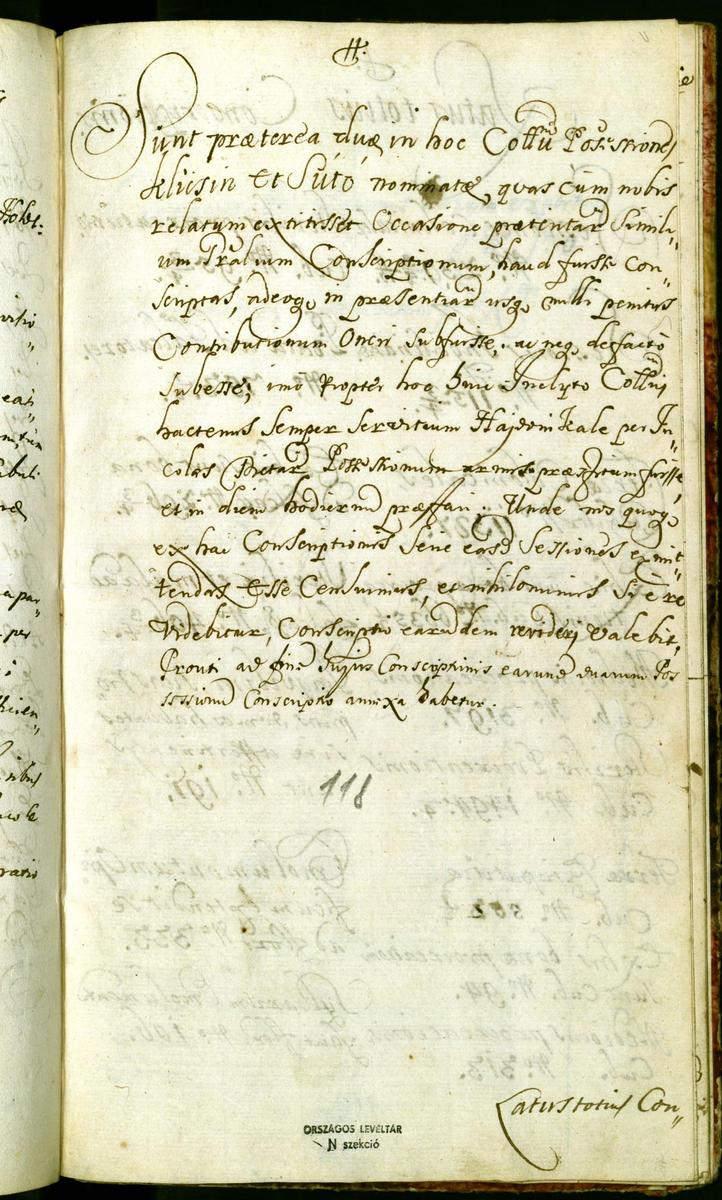 #.
Sunt præterea duæ in hoc Cottu Possessiones
Klúcsin Et Sútó nominatæ, quas cum nobis
relatum extitisset Occasione prætentar Simili„
um Pralium Conscriptionum, haud fuisse Con„
scriptas, adeoq, in præsentiar usq, nulli penitus
Contributionum Oneri Subfuisse, ac neq, de facto
Subesse; imo Propter hoc huic Inclyto Cottui
hactenus Semper Servitium Hajdonikale per In„
colas Dictar Possessionum armis præstitum fuisse,
et in diem hodiernu præstari. Unde nos quoq,
ex hac Conscriptionis Serie easd Sessiones exmit„
tendas Esse Censuimus, et nihilominus Si è re
Videbitur, Conscriptio earundem revideri Valebit,
Prouti ad fine hujus Conscriptionis earund duarum Pos
sessionu Conscriptio annexa habetur.
118
Latus totius Con„
ORSZÁGOS LEVÉLTÁR
N szekció